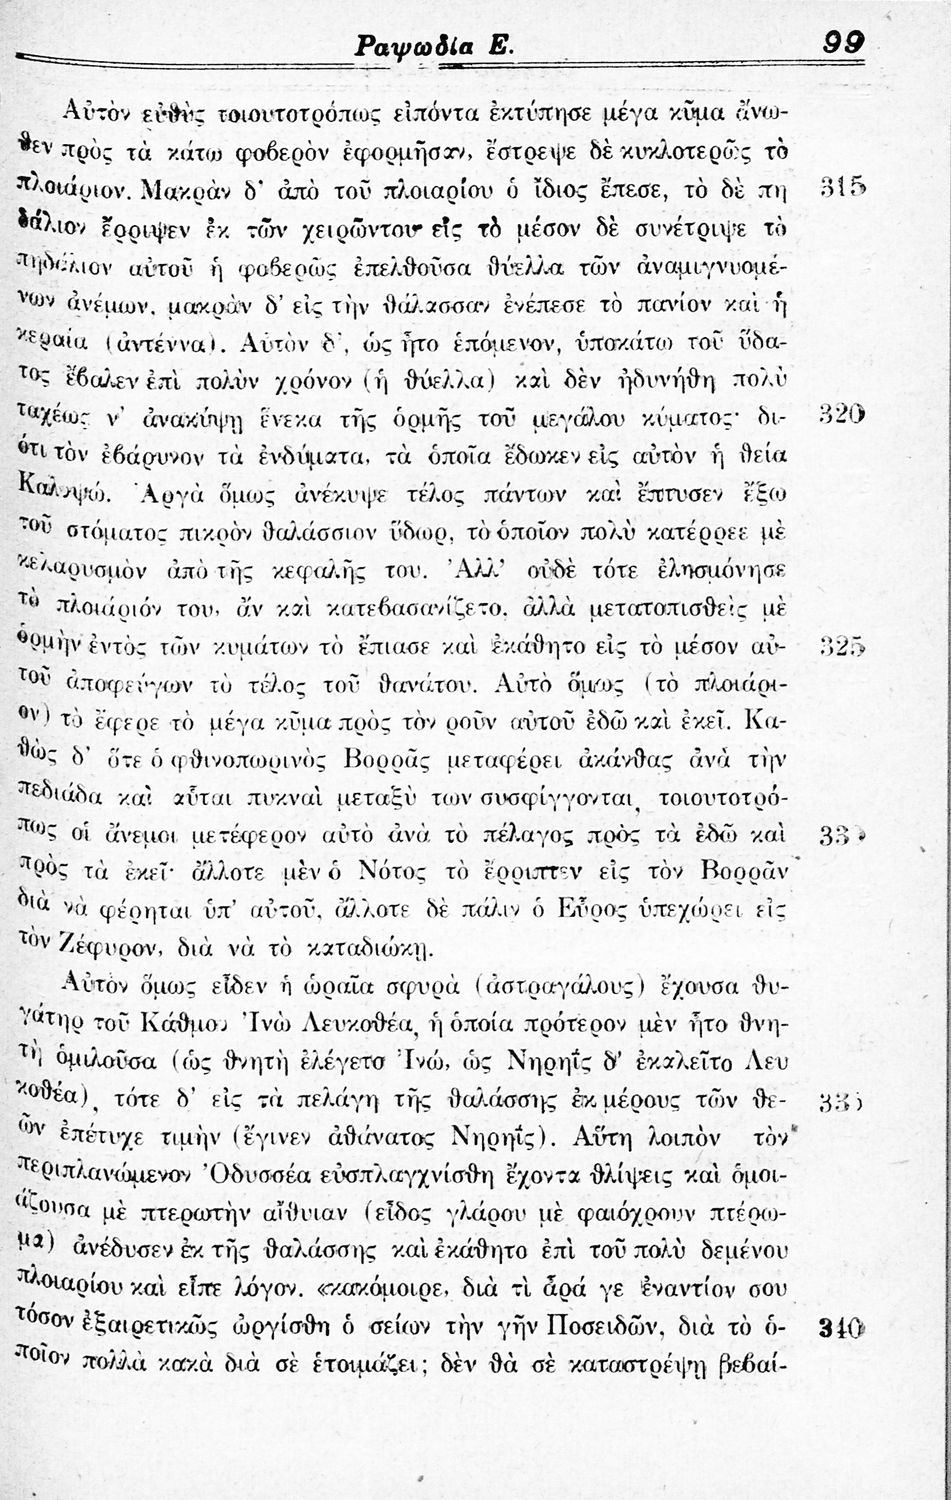 Ραψωδία Ε. 99
Αὐτὸν εὐθὺς τοιουτοτρόπως εἰπόντα ἐκτύπησε μέγα κῦμα ἄνω-
θεν πρὸς τὰ κάτω φοβερὸν ἐφορμῆσαν, ἔστρεψε δὲ κυκλοτερῶς τὸ
πλοιάριον. Μακρὰν δ' ἀπὸ τοῦ πλοιαρίου ὁ ἴδιος ἔπεσε, τὸ δὲ πη 315
δάλιον ἔρριψεν ἐκ τῶν χειρῶντου· εἰς τὸ μέσον δὲ συνέτριψε τὸ
πηδάλιον αὐτοῦ ἡ φοβερῶς ἐπελθοῦσα θύελλα τῶν ἀναμιγνυομέ-
νων ἀνέμων, μακρὰν δ' εἰς τὴν θάλασσαν ἐνέπεσε τὸ πανίον καὶ ἡ
κεραία (ἀντέννα). Αὐτὸν δ', ὡς ἦτο ἑπόμενον, ὑποκάτω τοῦ ὕδα-
τος ἔβαλεν ἐπὶ πολὺν χρόνον (ἡ θύελλα) καὶ δὲν ἠδυνήθη πολὺ
ταχέως ν' ἀνακύψῃ ἕνεκα τῆς ὁρμῆς τοῦ μεγάλου κύματος· δι- 320
ότι τὸν ἐβάρυνον τὰ ἐνδύματα, τὰ ὁποῖα ἔδωκεν εἰς αὐτὸν ἡ θεία
Καλυψώ. Ἀργὰ ὅμως ἀνέκυψε τέλος πάντων καὶ ἔπτυσεν ἔξω
τοῦ στόματος πικρὸν θαλάσσιον ὕδωρ, τὸ ὁποῖον πολὺ κατέρρεε μὲ
κελαρυσμὸν ἀπὸ τῆς κεφαλῆς του. Ἀλλ' οὐδὲ τότε ἐλησμόνησε
τὸ πλοιάριόν του, ἄν καὶ κατεβασανίζετο, ἀλλὰ μετατοπισθεὶς μὲ
ὁρμὴν ἐντὸς τῶν κυμάτων τὸ ἔπιασε καὶ ἐκάθητο εἰς τὸ μέσον αὐ- 325
τοῦ ἀποφεύγων τὸ τέλος τοῦ θανάτου. Αὐτὸ ὅμως (τὸ πλοιάρι-
ον) τὸ ἔφερε τὸ μέγα κῦμα πρὸς τὸν ροῦν αὐτοῦ ἐδῶ καὶ ἐκεῖ. Κα-
θὼς δ' ὅτε ὁ φθινοπωρινὸς Βορρᾶς μεταφέρει ἀκάνθας ἀνὰ τὴν
πεδιάδα καὶ αὗται πυκναὶ μεταξὺ των συσφίγγονται, τοιουτοτρό-
πως οἱ ἄνεμοι μετέφερον αὐτὸ ἀνὰ τὸ πέλαγος πρὸς τὰ ἐδῶ καὶ 330
πρὸς τὰ ἐκεῖ· ἄλλοτε μὲν ὁ Νότος τὸ ἔρριπτεν εἰς τὸν Βορρᾶν
διὰ νὰ φέρηται ὑπ' αὐτοῦ, ἄλλοτε δὲ πάλιν ὁ Εὖρος ὑπεχώρει εἰς
τὸν Ζέφυρον, διὰ νὰ τὸ καταδιώκῃ.
Αὐτὸν ὅμως εἶδεν ἡ ὡραῖα σφυρὰ (ἀστραγάλους) ἔχουσα θυ-
γάτηρ τοῦ Κάθμου Ἰνὼ Λευκοθέα, ἡ ὁποία πρότερον μὲν ἦτο θνη-
τὴ ὁμιλοῦσα (ὡς θνητὴ ἐλέγετο Ἰνώ, ὡς Νηρηῒς δ' ἐκαλεῖτο Λευ
κοθέα), τότε δ' εἰς τὰ πελάγη τῆς θαλάσσης ἐκ μέρους τῶν θε- 335
ῶν ἐπέτυχε τιμὴν (ἔγινεν ἀθάνατος Νηρηΐς). Αὕτη λοιπὸν τὸν
περιπλανώμενον Ὀδυσσέα εὐσπλαγχνίσθη ἔχοντα θλίψεις καὶ ὁμοι-
άζουσα μὲ πτερωτὴν αἴθυιαν (εἶδος γλάρου μὲ φαιόχρουν πτέρω-
μα) ἀνέδυσεν ἐκ τῆς θαλάσσης καὶ ἐκάθητο ἐπὶ τοῦ πολὺ δεμένου
πλοιαρίου καὶ εἶπε λόγον. «κακόμοιρε, διὰ τὶ ἆρά γε ἐναντίον σου
τόσον ἐξαιρετικῶς ὠργίσθη ὁ σείων τὴν γῆν Ποσειδῶν, διὰ τὸ ὁ- 340
ποῖον πολλὰ κακὰ διὰ σὲ ἑτοιμάζει; δὲν θὰ σὲ καταστρέψῃ βεβαί-